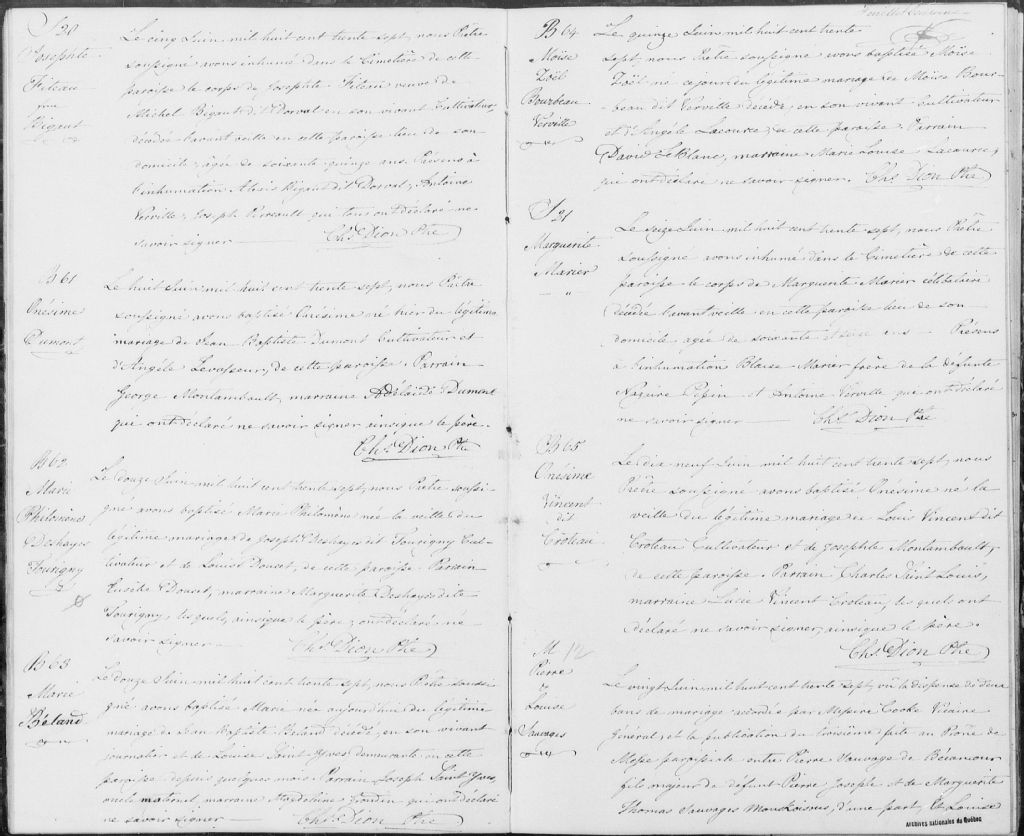 S 20
Josephte
Filteau
Bigaut
Le cinq Juin mil huit cent trente sept, nous Prêtre
soussigné avons inhumé dans le Cimetière de cette
paroisse le corps de Josephte Filau veuve de
Michel Bigaut dit Dorval en son vivant Cultivateur,
décédée l'avant veille en cette paroisse lieu de son
domicile, agée de soixante quinze ans. Présens à
l'inhumation Alexis Rigaud dit Dorval, Antoine
Verville, Joseph Perreault qui tous ont déclaré ne
savoir signer Chs. Dion Ptre
B 61
Onésime
Dumont
Le huit Juin mil huit cent trente sept, nous Prêtre
soussigné avons baptisé Onésime né hier du légitime
mariage de Jean Baptiste Dumont Cultivateur et
d'Angèle Levasseur, de cette paroisse. Parrain
George Montambault, marraine Adélaïde Dumont
qui ont déclaré ne savoir signer ainsique le père.
Chs. Dion Ptre
B 62
Marie
Philomène
Deshayes
Tourigny
Le douze Juin mil huit cent trente sept, nous Prêtre soussi-
gné avons baptisé Marie Philomène née la veille du
légitime mariage de Joseph Deshayes dit Tourigny Cul-
tivateur et de Louise Doucet, de cette paroisse. Parrain
Eusèbe Doucet, marraine Marguerite Deshayes dite
Tourigny, lesquels, ainsique le père, ont déclaré ne
savoir signer Chs. Dion Ptre
B 63
Marie
Béland
Le douze Juin mil huit cent trente sept, nous Prêtre soussi-
gné avons baptisé Marie née aujourd'hui du légitime
mariage de Jean Baptiste Béland décédé, en son vivant
journalier et de Louise Saint Yves demeurante en cette
paroisse depuis quelques mois. Parrain Joseph Saint Yves,
oncle maternel, marraine Madeleine qui ont déclaré
ne savoir signer Chs. Dion Ptre
B 64
Moïse
Zoël
Bourbeau
Verville
Le quinze Juin mil huit cent trente
sept, nous Prêtre soussigné avons baptisé Moïse
Zoël né ce jour du légitime mariage de Moïse Bour-
beau dit Verville décédé, en son vivant cultivateur
et d'Angèle Lacource, de cette paroisse. Parrain
David LeBlanc, marraine Marie Louise Lacource,
qui ont déclaré ne savoir signer. Chs. Dion Ptre
S 21
Marguerite
Marier
Le seize Juin mil huit cent trente sept, nous Prêtre
soussigné avons inhumé dans le Cimetière de cette
paroisse le corps de Marguerite Marier célibataire
décédée l'avant veille en cette paroisse lieu de son
domicile agée de soixante et seize ans. Présens
à l'inhumation Blaise Marier frère de la défunte
Nazaire Pepin et Antoine Verville qui ont déclaré
ne savoir signer Chs. Dion Ptre
B 65
Onésime
Vincent
dit
Croteau
Le dix neuf Juin mil huit cent trente sept, nous
Prêtre soussigné avons baptisé Onésime né la
veille du légitime mariage de Louis Vincent dit
Croteau Cultivateur et de Josephte Montambault,
de cette paroisse. Parrain Charles Saint Louis,
marraine Lucie Vincent Croteau, lesquels ont
déclaré ne savoir signer, ainsique le père.
Chs. Dion Ptre
M 12
Pierre
&
Louise
Sauvages
Le vingt Juin mil huit cent trente sept, vû la dispense de deux
bans de mariage accordée par Messire Cooke Vicaire
Général, et la publication du troisième faite au Prône de
Messe paroissiale entre Pierre Sauvage de Bécancour
fils majeur de défunt Pierre Joseph et de Marguerite
Thomas Sauvages d'une part, Et Louise
Archives nationales du Québec